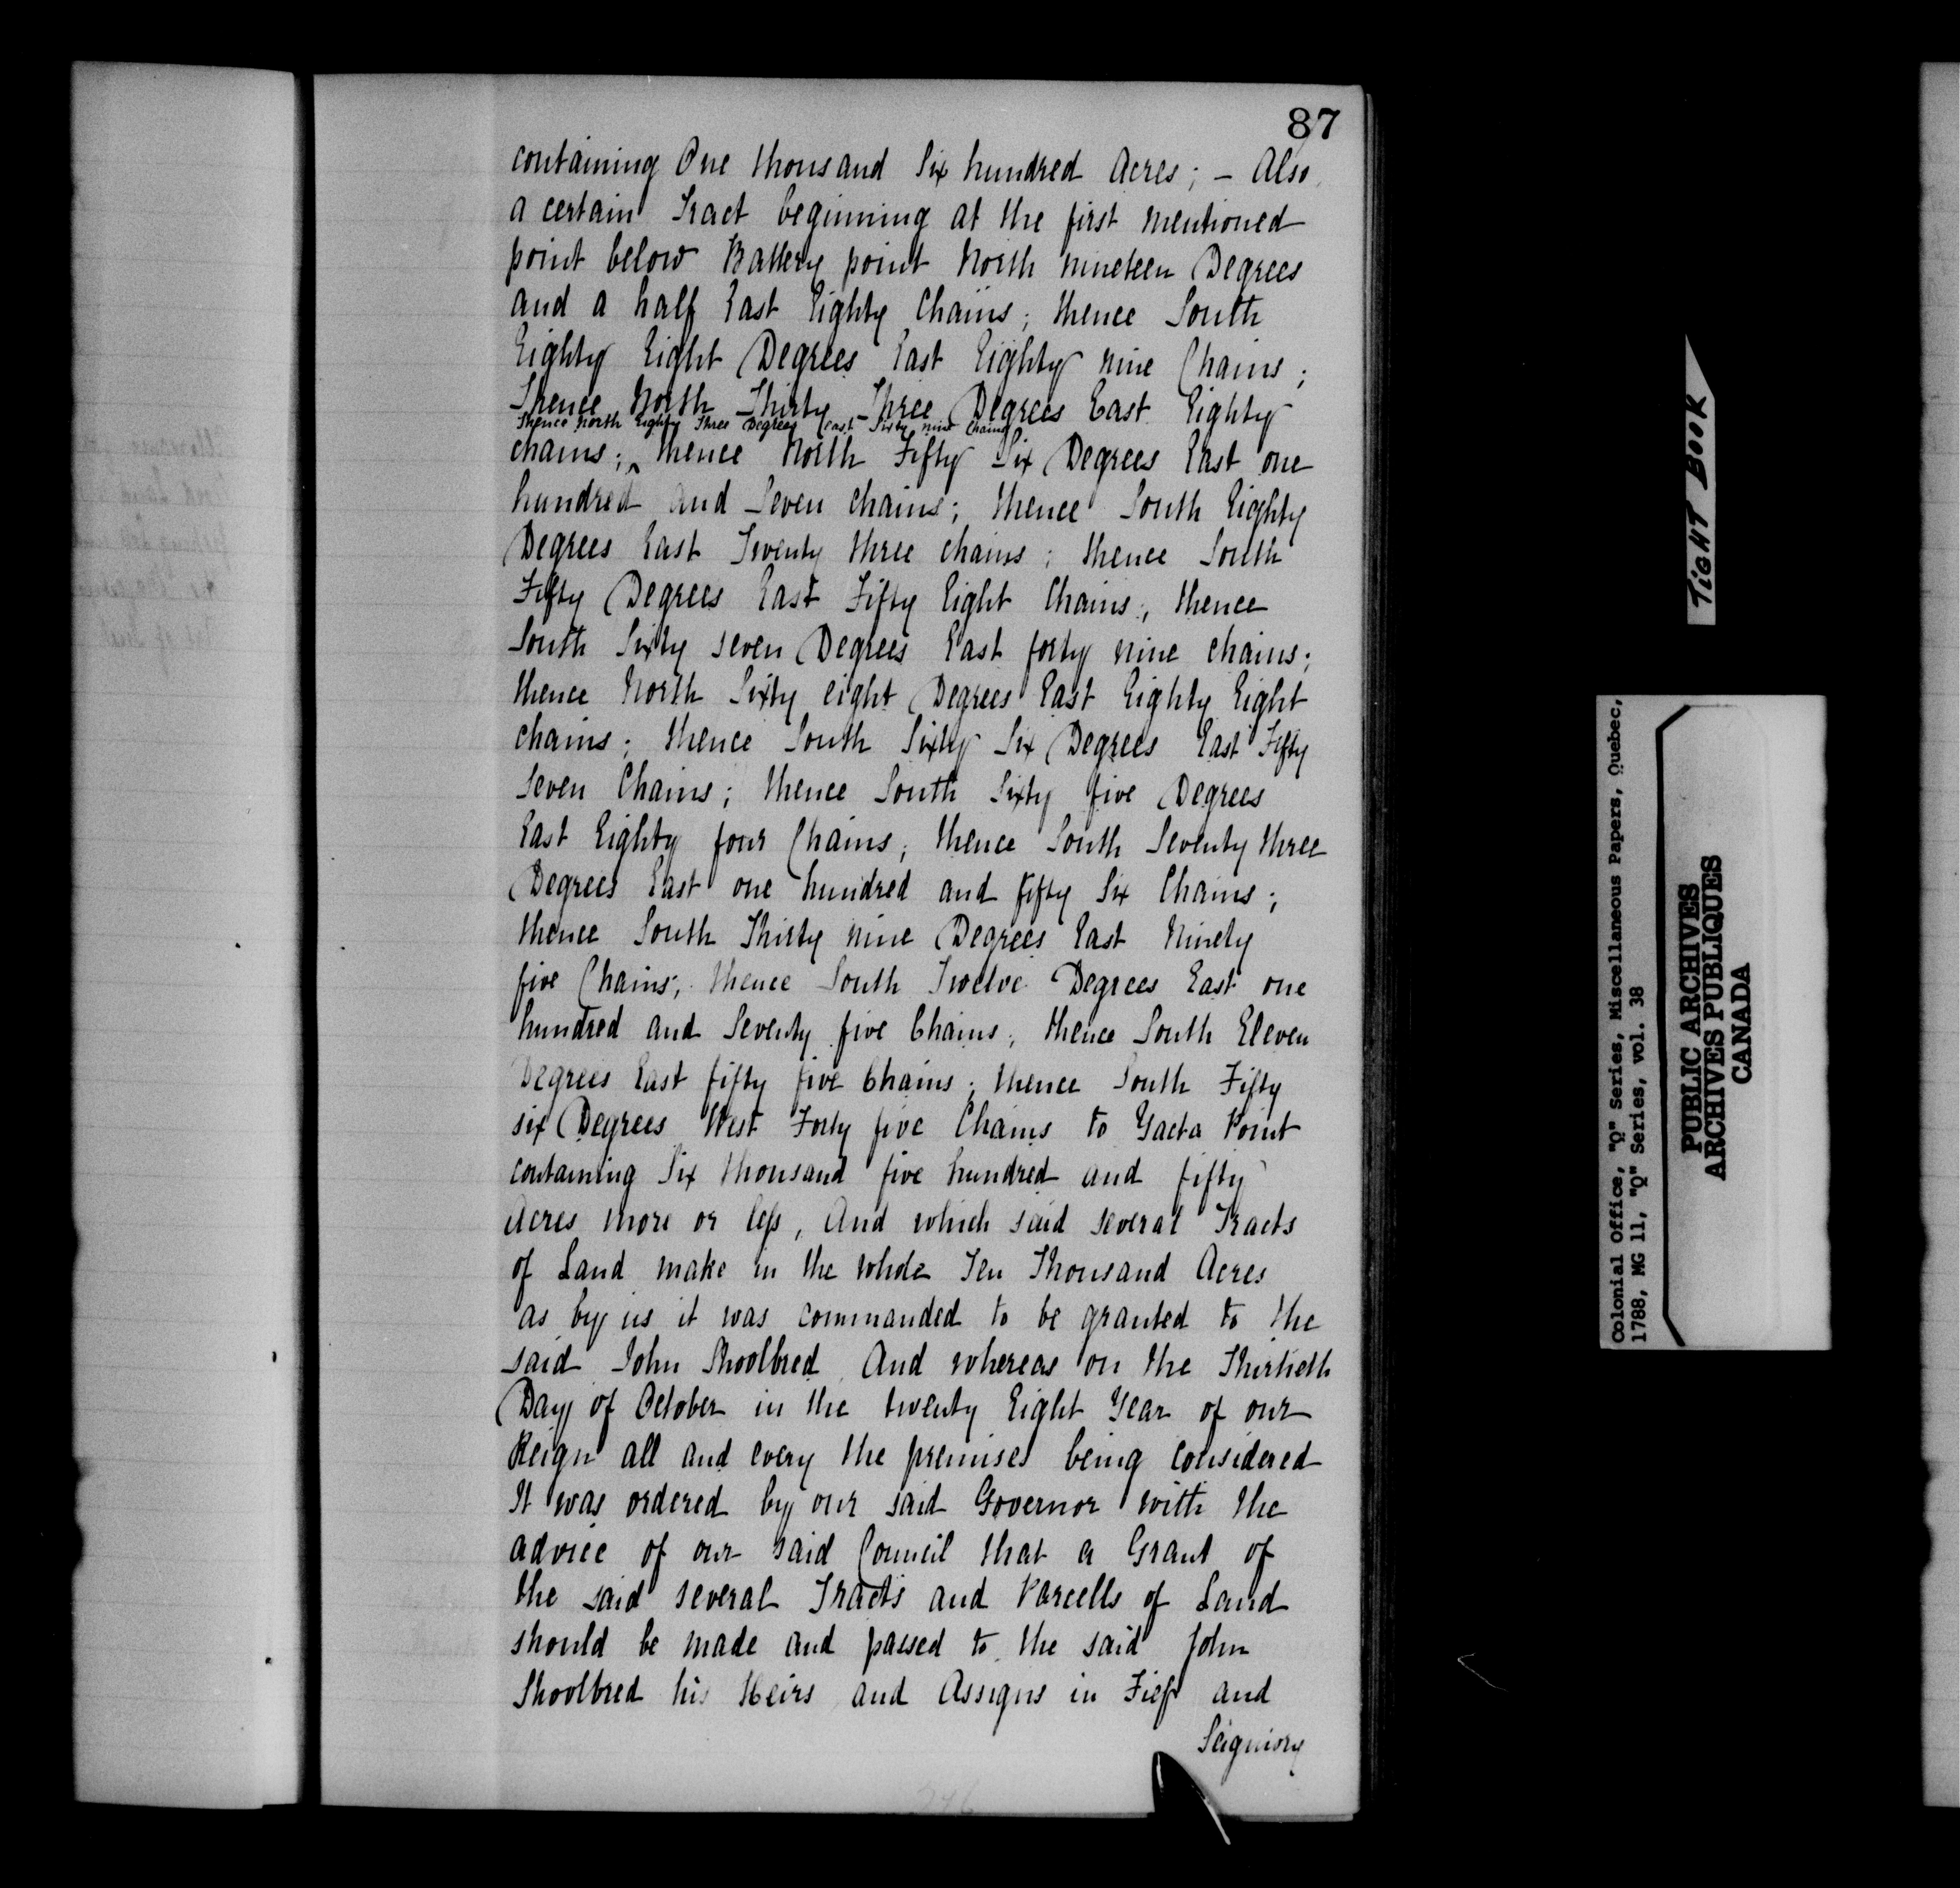 87
containing One thousand Six hundred Acres; - Also
a certain Tract beginning at the first mentioned
point below Battery point North nineteen Degrees
and a half East Eighty Chains; thence South
Eighty Eight Degrees East Eighty nine Chains;
Thence North Thirty Three Degrees East Eighty
Thence North Eighty Three Degrees East Sixty nine Chains
chains; ^ thence North Fifty Six Degrees East one
hundred and Seven chains; thence South Eighty
Degrees East Twenty three chains; thence South
Fifty Degrees East Fifty Eight Chains; thence
South Sixty seven Degrees East forty nine chains;
thence North Sixty eight Degrees East Eighty Eight
chains; thence South Sixty Six Degrees East Fifty
seven Chains; thence South Sixty five Degrees
East Eighty four Chains; thence South Seventy three
Degrees East one hundred and fifty Six Chains;
thence South Thirty nine Degrees East Ninety
five Chains; thence South Twelve Degrees East one
hundred and Seventy five Chains; thence South Eleven
Degrees East fifty five Chains; thence South Fifty
six Degrees West Forty five Chains to Yacta Point
containing Six thousand five hundred and fifty
Acres more or less, And which said several Tracts
of Land make in the whole Ten Thousand Acres
as by us it was commanded to be granted to the
said John Shoolbred And whereas on the Thirtieth
Day of October in the twenty Eight Year of our
Reign all and every the premises being considered
It was ordered by our said Governor with the
advice of our said Council that a Grant of
the said several Tracts and Parcells of Land
should be made and passed to the said John
Shoolbred his Heirs and Assigns in Fief and
Seigniory
246
TIGHT BOOK
Colonial Office, "Q" Series, Miscellaneous Papers, Quebec,
1788, MG 11, "Q" Series, vol. 38
PUBLIC ARCHIVES
ARCHIVES PUBLIQUES
CANADA